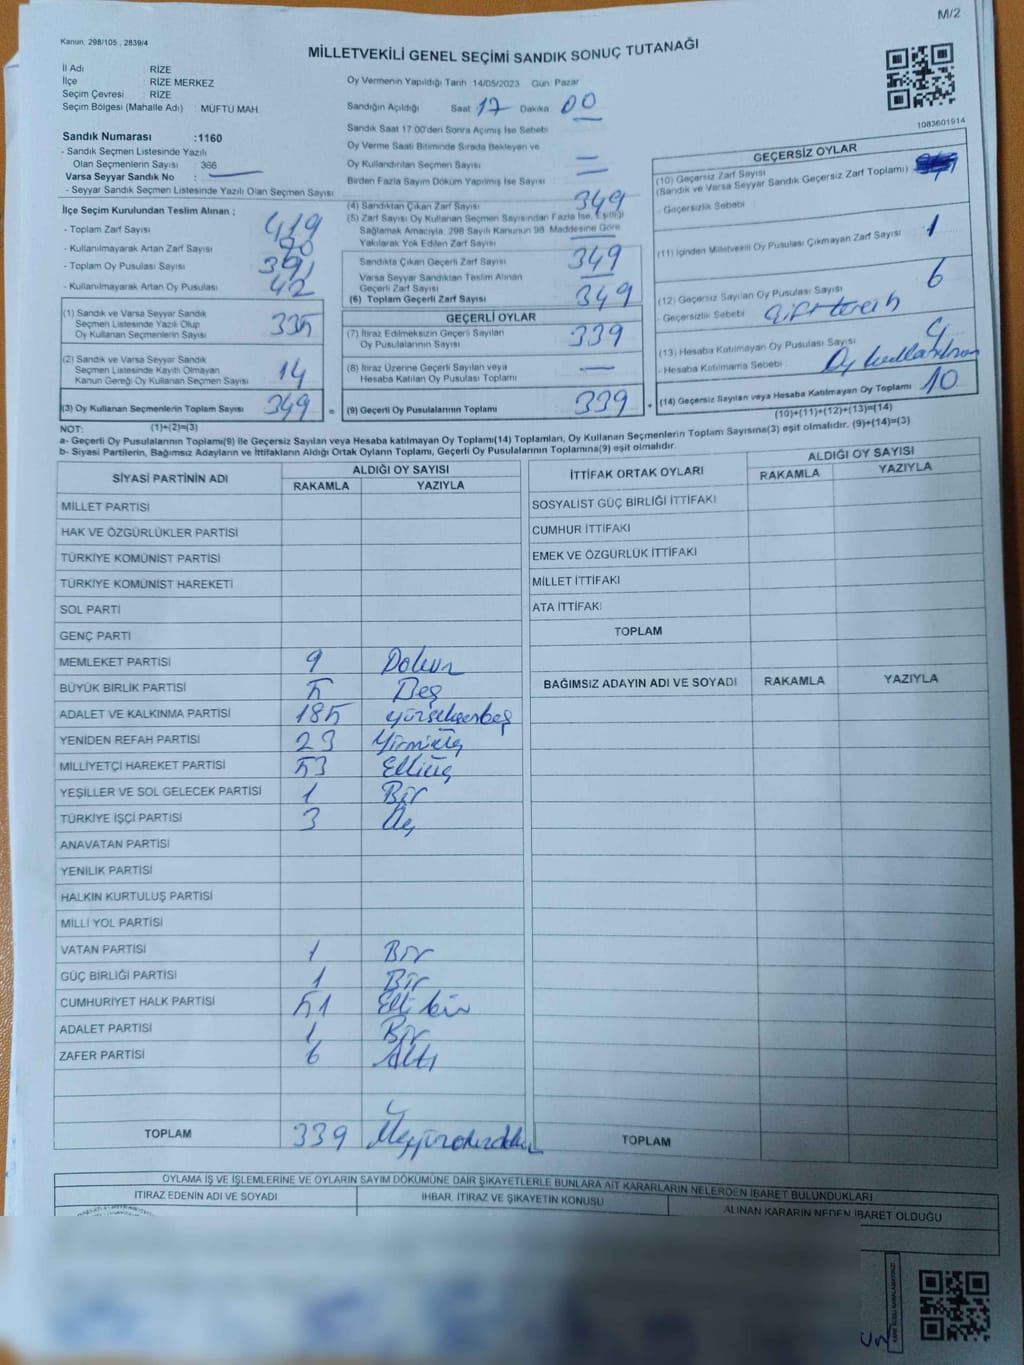 M/2
Kanun: 298/105 , 2839/4
MİLLETVEKİLİ GENEL SEÇİMİ SANDIK SONUÇ TUTANAĞI
İl Adı : RİZE
İlçe : RİZE MERKEZ
Seçim Çevresi : RİZE
Seçim Bölgesi (Mahalle Adı) : MÜFTÜ MAH.
Sandık Numarası : 1160
- Sandık Seçmen Listesinde Yazılı
Olan Seçmenlerin Sayısı : 366
Varsa Seyyar Sandık No :
- Seyyar Sandık Seçmen Listesinde Yazılı Olan Seçmen Sayısı
Oy Vermenin Yapıldığı Tarih :14/05/2023 Gün: Pazar
Sandığın Açıldığı Saat 17 Dakika 00
Sandık Saat 17.00'den Sonra Açımış İse Sebebi
Oy Verme Saati Bitiminde Sırada Bekleyen ve
Oy Kullandırılan Seçmen Sayısı —
Birden Fazla Sayım Döküm Yapılmış İse Sayısı —
1083601914
İlçe Seçim Kurulundan Teslim Alınan :
- Toplam Zarf Sayısı 419
- Kullanılmayarak Artan Zarf Sayısı 70
- Toplam Oy Pusulası Sayısı 391
- Kullanılmayarak Artan Oy Pusulası 42
(1) Sandık ve Varsa Seyyar Sandık
Seçmen Listesinde Yazılı Olup
Oy Kullanan Seçmenlerin Sayısı 335
(2) Sandık ve Varsa Seyyar Sandık
Seçmen Listesinde Kayıtlı Olmayan
Kanun Gereği Oy Kullanan Seçmen Sayısı 14
(3) Oy Kullanan Seçmenlerin Toplam Sayısı 349 =
(1)+(2)=(3)
(4) Sandıktan Çıkan Zarf Sayısı 349
(5) Zarf Sayısı Oy Kullanan Seçmen Sayısından Fazla İse, Eşitliği
Sağlamak Amacıyla, 298 Sayılı Kanunun 98. Maddesine Göre
Yakılarak Yok Edilen Zarf Sayısı
Sandıkta Çıkan Geçerli Zarf Sayısı 349
Varsa Seyyar Sandıktan Teslim Alınan
Geçerli Zarf Sayısı —
(6) Toplam Geçerli Zarf Sayısı 349
GEÇERLİ OYLAR
(7) İtiraz Edilmeksizin Geçerli Sayılan
Oy Pusulalarının Sayısı 339
(8) İtiraz Üzerine Geçerli Sayılan veya
Hesaba Katılan Oy Pusulası Toplamı —
(9) Geçerli Oy Pusulalarının Toplamı 339 +
GEÇERSİZ OYLAR
(10) Geçersiz Zarf Sayısı
(Sandık ve Varsa Seyyar Sandık Geçersiz Zarf Toplamı)
- Geçersizlik Sebebi
(11) İçinden Milletvekili Oy Pusulası Çıkmayan Zarf Sayısı 1
(12) Geçersiz Sayılan Oy Pusulası Sayısı 6
- Geçersizlik Sebebi Çift tercih
(13) Hesaba Katılmayan Oy Pusulası Sayısı
- Hesaba Katılmama Sebebi Oy
(14) Geçersiz Sayılan veya Hesaba Katılmayan Oy Toplamı 10
(10)+(11)+(12)+(13)=(14)
NOT:
a- Geçerli Oy Pusulalarının Toplamı(9) ile Geçersiz Sayılan veya Hesaba katılmayan Oy Toplamı(14) Toplamları, Oy Kullanan Seçmenlerin Toplam Sayısına(3) eşit olmalıdır. (9)+(14)=(3)
b- Siyasi Partilerin, Bağımsız Adayların ve İttifakların Aldığı Ortak Oyların Toplamı, Geçerli Oy Pusulalarının Toplamına(9) eşit olmalıdır.
SİYASİ PARTİNİN ADI ALDIĞI OY SAYISI
RAKAMLA YAZIYLA
MİLLET PARTİSİ
HAK VE ÖZGÜRLÜKLER PARTİSİ
TÜRKİYE KOMÜNİST PARTİSİ
TÜRKİYE KOMÜNİST HAREKETİ
SOL PARTİ
GENÇ PARTİ
MEMLEKET PARTİSİ 9 Dokuz
BÜYÜK BİRLİK PARTİSİ 5 Beş
ADALET VE KALKINMA PARTİSİ 185 yüzseksenbeş
YENİDEN REFAH PARTİSİ 23 Yirmiüç
MİLLİYETÇİ HAREKET PARTİSİ 53 Elliüç
YEŞİLLER VE SOL GELECEK PARTİSİ 1 Bir
TÜRKİYE İŞÇİ PARTİSİ 3 Üç
ANAVATAN PARTİSİ
YENİLİK PARTİSİ
HALKIN KURTULUŞ PARTİSİ
MİLLİ YOL PARTİSİ
VATAN PARTİSİ 1 Bir
GÜÇ BİRLİĞİ PARTİSİ 1 Bir
CUMHURİYET HALK PARTİSİ 51 Elli bir
ADALET PARTİSİ 1 Bir
ZAFER PARTİSİ 6 Altı
TOPLAM 339 Üçyüzotuzdokuz
İTTİFAK ORTAK OYLARI ALDIĞI OY SAYISI
RAKAMLA YAZIYLA
SOSYALİST GÜÇ BİRLİĞİ İTTİFAKI
CUMHUR İTTİFAKI
EMEK VE ÖZGÜRLÜK İTTİFAKI
MİLLET İTTİFAKI
ATA İTTİFAKI
TOPLAM
BAĞIMSIZ ADAYIN ADI VE SOYADI RAKAMLA YAZIYLA
TOPLAM
OYLAMA İŞ VE İŞLEMLERİNE VE OYLARIN SAYIM DÖKÜMÜNE DAİR ŞİKAYETLERLE BUNLARA AİT KARARLARIN NELERDEN İBARET BULUNDUKLARI
İTİRAZ EDENİN ADI VE SOYADI İHBAR, İTİRAZ VE ŞİKAYETİN KONUSU ALINAN KARARIN NEDEN İBARET OLDUĞU